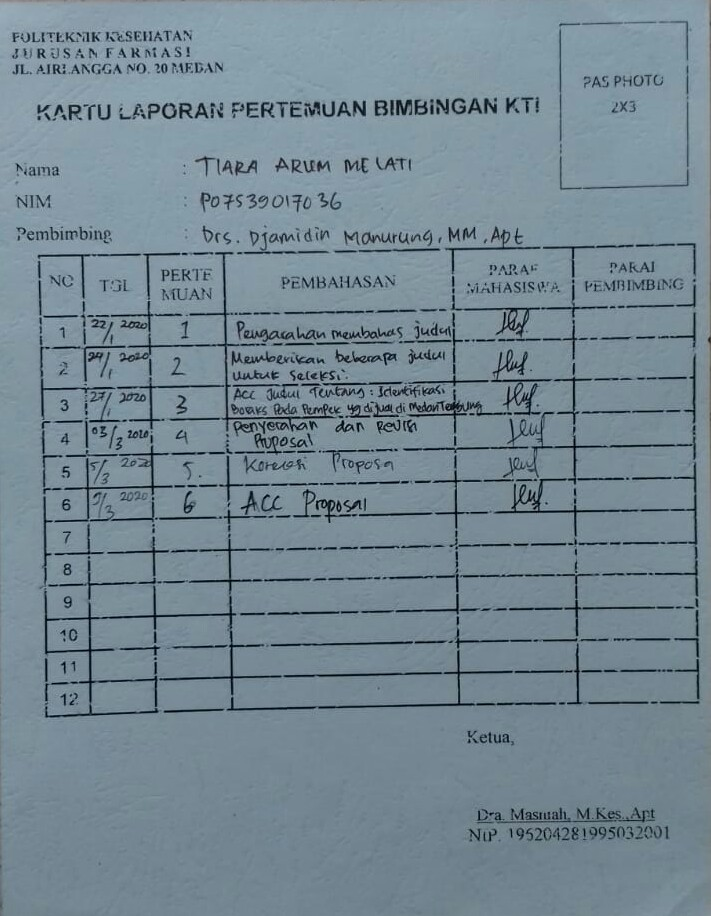 POLITEKNIK KESEHATAN
JURUSAN FARMASI
JL. AIRLANGGA NO. 20 MEDAN
PAS PHOTO
2X3
KARTU LAPORAN PERTEMUAN BIMBINGAN KTI
Nama : TIARA ARUM MELATI
NIM : P07539017036
Pembimbing : Drs. Djamidin Manurung, MM, Apt
NO TGL PERTEMUAN PEMBAHASAN PARAF MAHASISWA PARAF PEMBIMBING
1 22/1 2020 1 Pengarahan membahas judul
2 24/1 2020 2 Memberikan beberapa judul
untuk seleksi.
3 27/1 2020 3 Acc Judul Tentang : Identifikasi
Boraks Pada Pempek yg dijual di Medan Tembung
4 03/3 2020 4 Penyerahan dan Revisi
Proposal
5 5/3 2020 5. Koreksi Proposa
6 9/3 2020 6 ACC Proposal
7
8
9
10
11
12
Ketua,
Dra. Masniah, M.Kes.,Apt
NIP. 195204281995032001